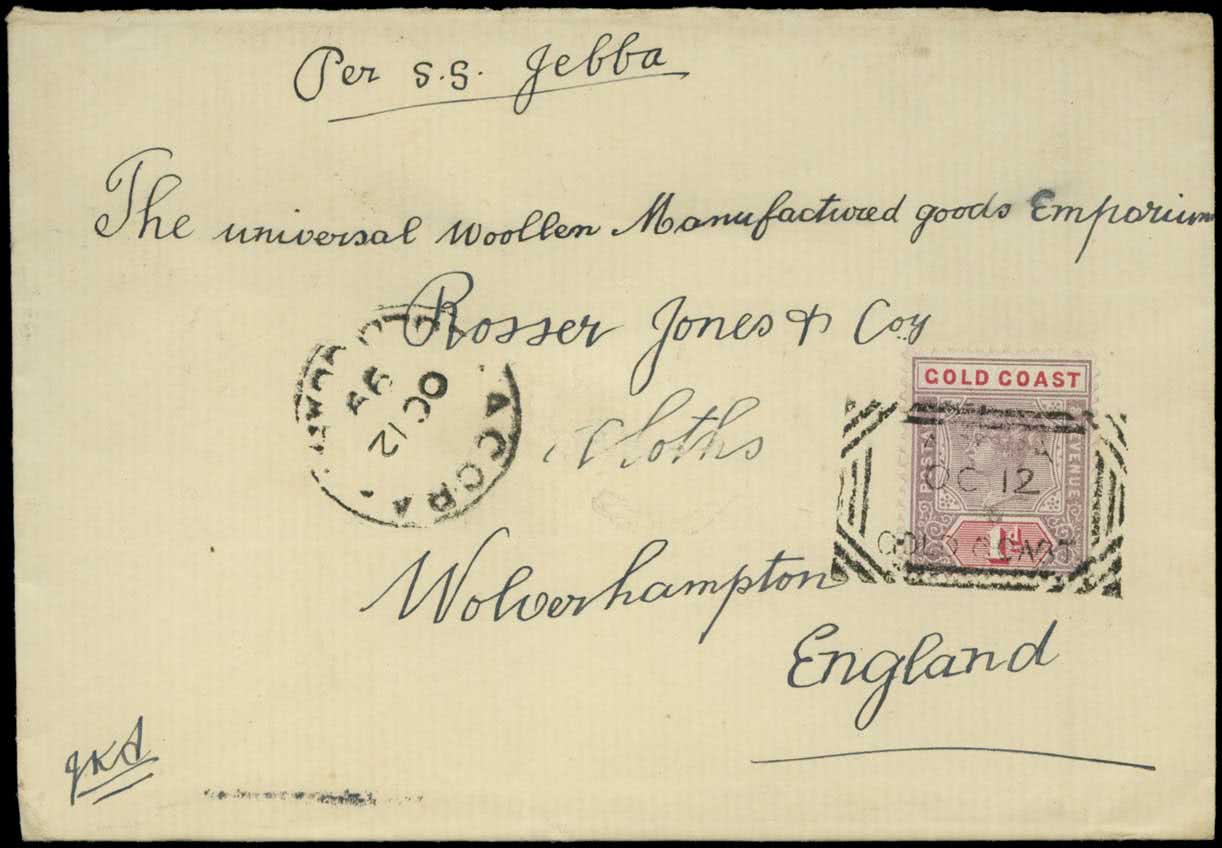 Per S.S. Jebba
The universal Woollen Manufactured goods Emporium
Rosser Jones & Coy
Cloths
Wolverhampton
England
JKA
ACCRA
OC 12
99
GOLD COAST
POSTAGE
REVENUE
1D
OC 12
GOLD COAST